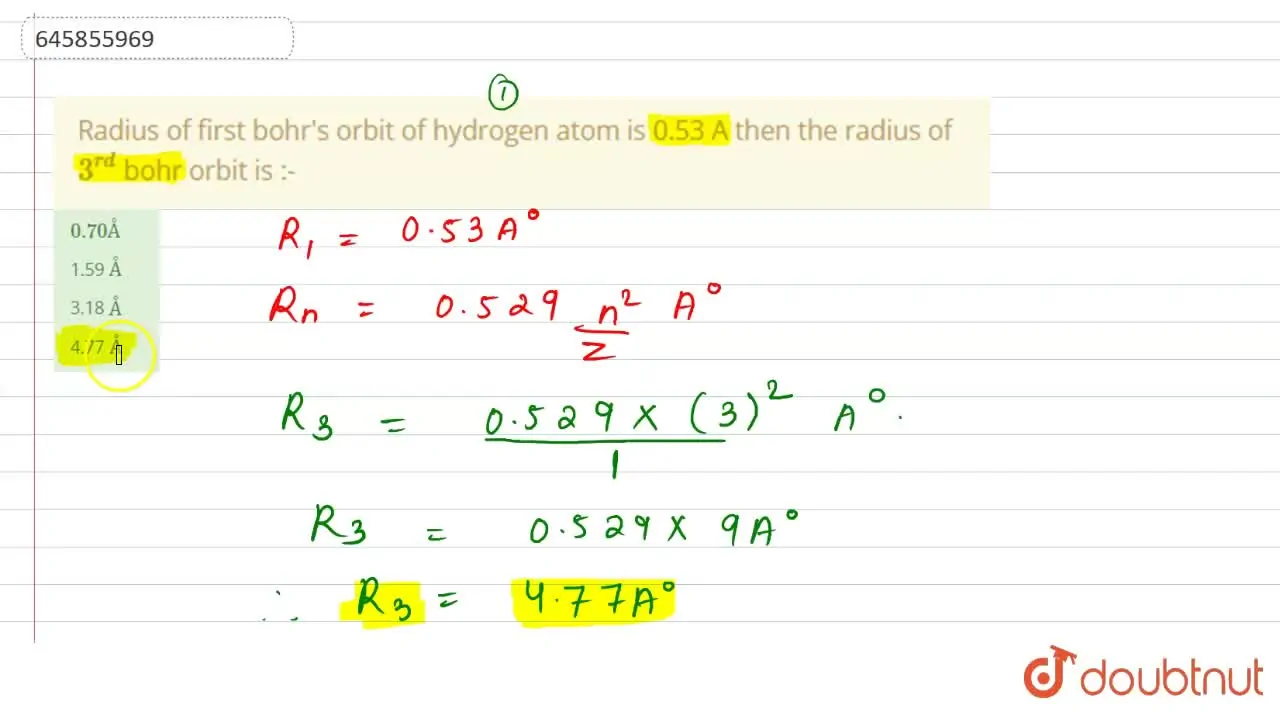 645855969
①
Radius of first bohr's orbit of hydrogen atom is 0.53 A then the radius of
3ʳᵈ bohr orbit is :-
0.70Å
1.59 Å
3.18 Å
4.77 Å
R₁ = 0.53 A°
Rn = 0.529 n²/Z A°
R₃ = 0.529 × (3)²/1 A°.
R₃ = 0.529 × 9A°
∴ R₃ = 4.77A°
doubtnut